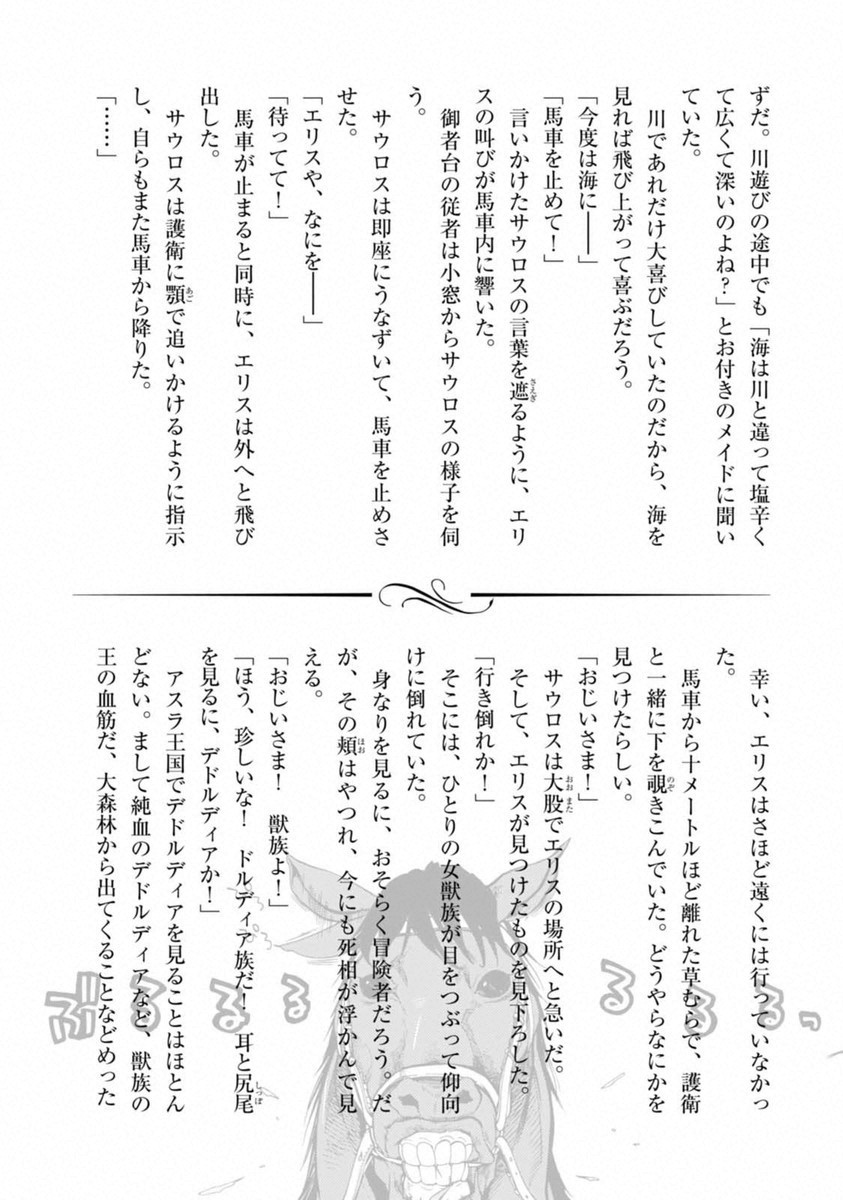 ずだ。川遊びの途中でも「海は川と違って塩辛く
て広くて深いのよね？」とお付きのメイドに聞い
ていた。
　川であれだけ大喜びしていたのだから、海を
見れば飛び上がって喜ぶだろう。
「今度は海に――」
「馬車を止めて！」
　言いかけたサウロスの言葉を遮るように、エリ
スの叫びが馬車内に響いた。
　御者台の従者は小窓からサウロスの様子を伺
う。
　サウロスは即座にうなずいて、馬車を止めさ
せた。
「エリスや、なにを――」
「待ってて！」
　馬車が止まると同時に、エリスは外へと飛び
出した。
　サウロスは護衛に顎で追いかけるように指示
し、自らもまた馬車から降りた。
「……」
　幸い、エリスはさほど遠くには行っていなかっ
た。
　馬車から十メートルほど離れた草むらで、護衛
と一緒に下を覗きこんでいた。どうやらなにかを
見つけたらしい。
「おじいさま！」
　サウロスは大股でエリスの場所へと急いだ。
　そして、エリスが見つけたものを見下ろした。
「行き倒れか！」
　そこには、ひとりの女獣族が目をつぶって仰向
けに倒れていた。
　身なりを見るに、おそらく冒険者だろう。だ
が、その頬はやつれ、今にも死相が浮かんで見
える。
「おじいさま！　獣族よ！」
「ほう、珍しいな！　ドルディア族だ！　耳と尻尾
を見るに、デドルディアか！」
　アスラ王国でデドルディアを見ることはほとん
どない。まして純血のデドルディアなど、獣族の
王の血筋だ、大森林から出てくることなどめった
ぶるるるるるっ